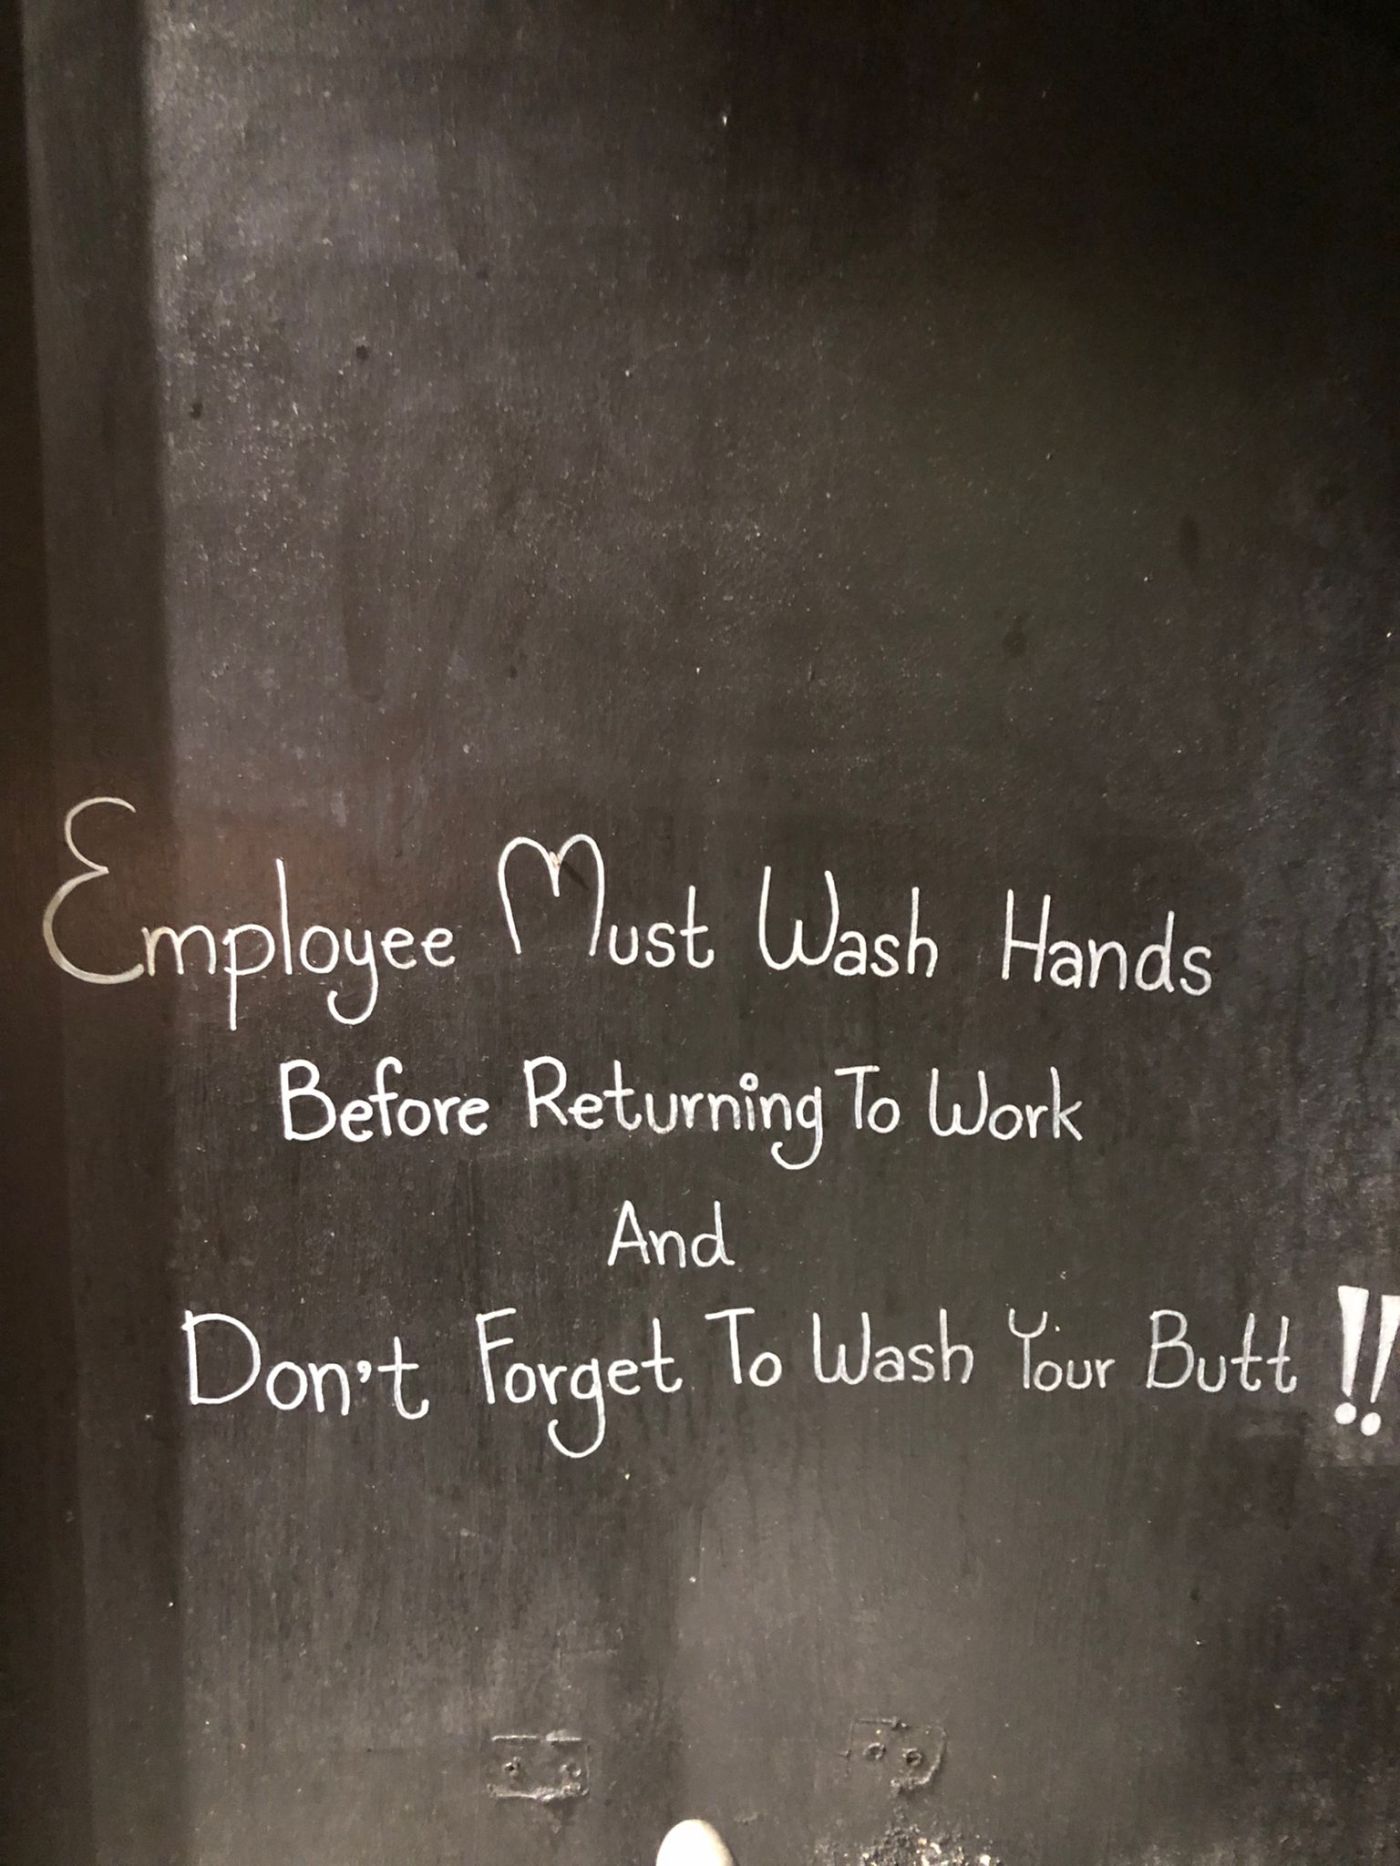 Employee Must Wash Hands
Before Returning To Work
And
Don't Forget To Wash Your Butt !!